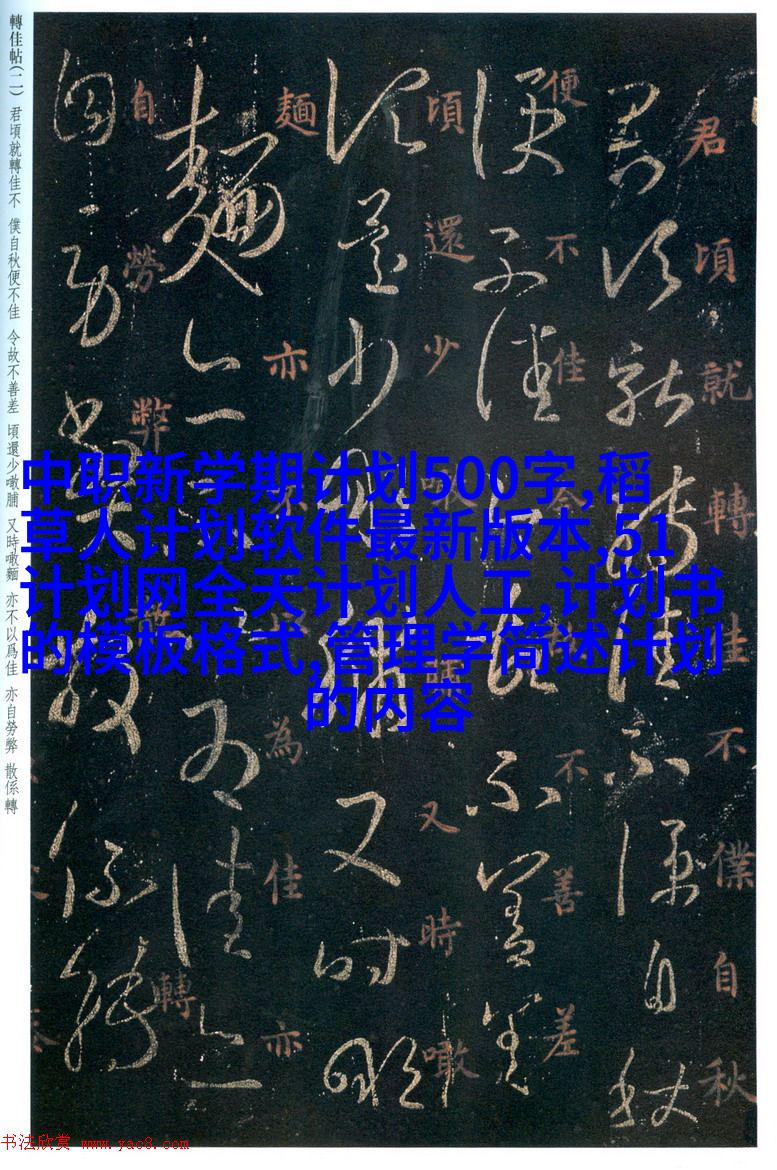 君頃就轉佳不僕自秋
便不佳令故不善差
頃還少噉脯又時噉
麵亦不以為佳亦
自勞弊散係轉
轉佳帖(二) 君頃就轉佳不 僕自秋便不佳 令故不善差 頃還少噉脯 又時噉麵 亦不以爲佳 亦自勞弊 散係轉
中职新学期计划500字,稻
草人计划软件最新版本,51
计划网全天计划人工,计划书
的模板格式,管理学简述计划
的内容
书法欣赏 www.yac8.com